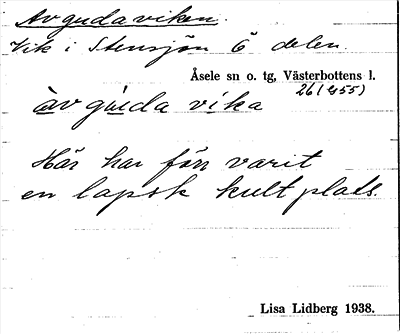 Avgudaviken.
Vik i Stensjön Ö delen.
Åsele sn o. tg, Västerbottens l.
26 (455)
àv gùda vika
Här har förr varit
en lapsk kultplats.
Lisa Lidberg 1938.